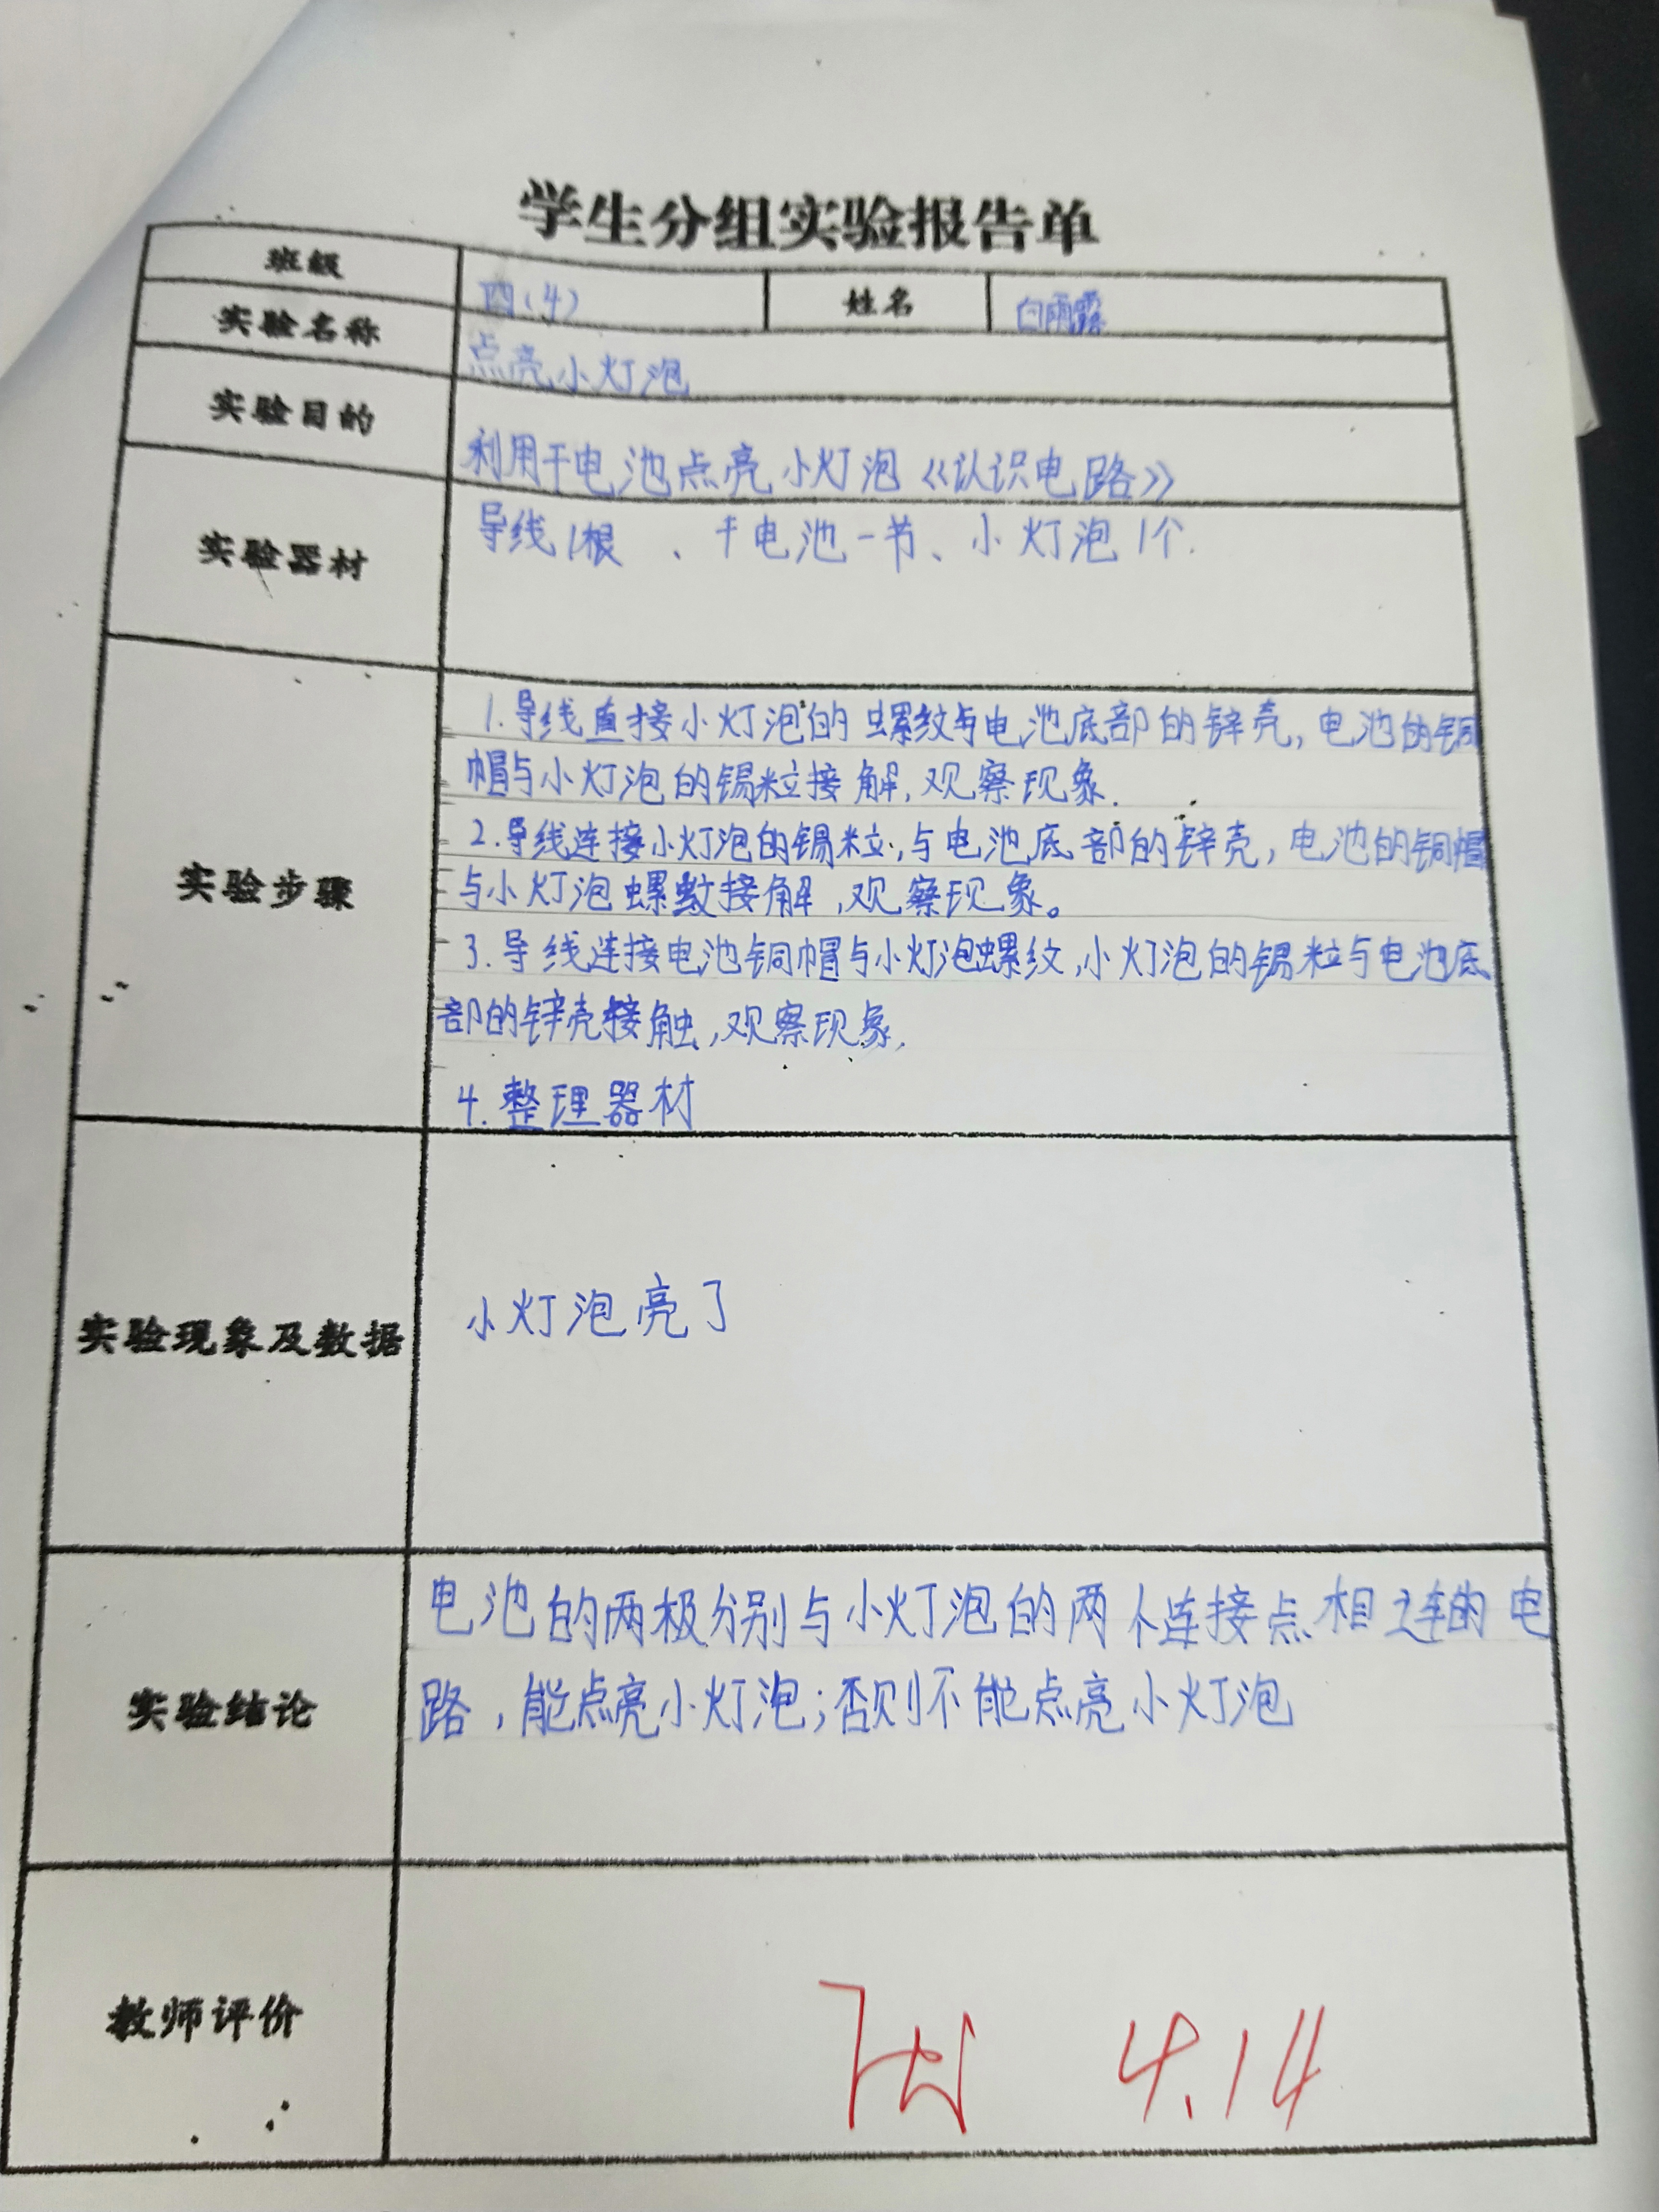 学生分组实验报告单
班级 四(4) 姓名 白雨露
实验名称 点亮小灯泡
实验目的 利用干电池点亮小灯泡《认识电路》
实验器材 导线1根、干电池一节、小灯泡1个.
实验步骤
1.导线直接小灯泡的螺纹与电池底部的锌壳,电池的铜
帽与小灯泡的锡粒接解,观察现象.
2.导线连接小灯泡的锡粒,与电池底部的锌壳,电池的铜帽
与小灯泡螺纹接解,观察现象。
3.导线连接电池铜帽与小灯泡螺纹,小灯泡的锡粒与电池底
部的锌壳接触,观察现象.
4.整理器材
实验现象及数据 小灯泡亮了
实验结论
电池的两极分别与小灯泡的两个连接点相连的电
路,能点亮小灯泡;否则不能点亮小灯泡
教师评价 4.14